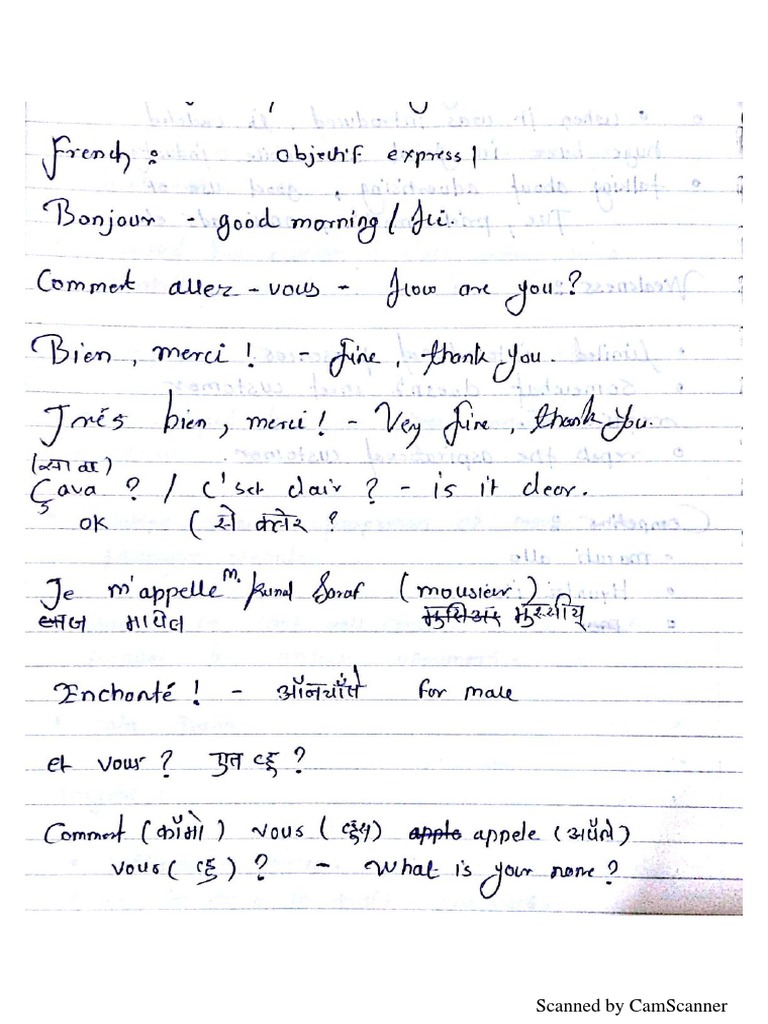 French : Objectif express 1
Bonjour - good morning / Hi.
Comment allez - vous - How are you?
Bien, merci ! - Fine, thank you.
Trés bien, merci ! - Very fine, thank you.
(सा वा)
Ça va ? / C'set clair ? - is it clear.
ok (से क्लेर ?
Je m'appelle M. Kunal Saraf (mousieur)
ज मापेल मुस्यीय्
Enchanté ! - ऑनचाँते for male
et vous ? एत व्हू ?
Comment (कॉमों) vous (व्हूस) appele (अपेले)
vous (व्हू) ? - What is your name ?
Scanned by CamScanner